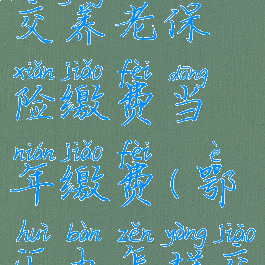 交养老保
xiǎn jiǎo fèi dāng
险缴费当
nián jiǎo fèi è
年缴费(鄂
huì bàn zěn yàng jiāo